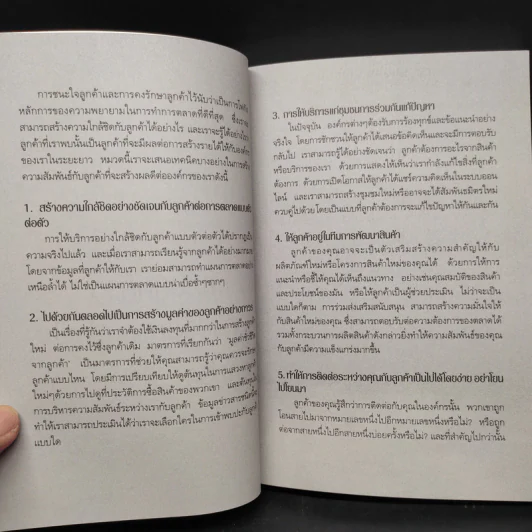 การชนะใจลูกค้าและการคงรักษาลูกค้าไว้นับว่าเป็นการโฟกัส
หลักการของความพยายามในการทำการตลาดที่ดีที่สุด ซึ่งเรา
สามารถสร้างความใกล้ชิดกับลูกค้าได้อย่างไร และเราจะรู้ได้อย่างไรว่า
ลูกค้าที่เราพบนั้นเป็นลูกค้าที่จะมีผลต่อการสร้างรายได้ให้กับองค์กร
ของเราในระยะยาว หมวดนี้เราจะเสนอเทคนิคบางอย่างในการทำ
ความสัมพันธ์กับลูกค้าที่จะสร้างผลดีต่อองค์กรของเราดังนี้
1. สร้างความใกล้ชิดอย่างชัดเจนกับลูกค้าต่อการตลาดแบบตัว
ต่อตัว
การให้บริการอย่างใกล้ชิดกับลูกค้าแบบตัวต่อตัวได้ปรากฏเป็น
ความจริงไปแล้ว และเราสามารถเรียนรู้จากลูกค้าได้อย่างมาก
โดยจากข้อมูลที่ลูกค้าให้กับเรา เราย่อมสามารถทำแผนการตลาด
เหนือล้ำได้ ไม่ใช่เป็นแผนการตลาดแบบน่าเบื่อซ้ำๆซากๆ
2. ไปด้วยกันตลอดไปเป็นการสร้างมูลค่าของลูกค้าอย่างถาวร
เป็นเรื่องที่รู้กันว่าเราจำต้องใช้เงินลงทุนที่มากกว่าในการสร้างลูกค้า
ใหม่ ต่อการคงไว้ซึ่งลูกค้าเดิม มาตรการที่เรียกกันว่า มูลค่าชีวิตของ
ลูกค้า' เป็นมาตรการที่ช่วยให้คุณสามารถรู้ว่าคุณควรจะรักษา
ลูกค้าแบบไหน โดยมีการเปรียบเทียบให้ดูต้นทุนในการแสวงหาลูกค้า
ใหม่ๆด้วยการไปดูที่ประวัติการซื้อสินค้าของพวกเขา และต้นทุนใน
การบริหารความสัมพันธ์ระหว่างเรากับลูกค้า ข้อมูลข่าวสารชนิดนี้
ทำให้เราสามารถประเมินได้ว่าเราจะเลือกใครในการเข้าพบปะกับลูกค้า
แบบใด
3. การให้บริการแก่ชุมชนการร่วมกันแก้ปัญหา
ในปัจจุบัน องค์กรต่างๆต้องรับการร้องทุกข์และข้อแนะนำอย่าง
จริงใจ โดยการชักชวนให้ลูกค้าได้เสนอข้อคิดเห็นและจะมีการตอบรับ
กลับไป เราสามารถรู้ได้อย่างชัดเจนว่า ลูกค้าต้องการอะไรจากสินค้า
หรือบริการของเรา ด้วยการแสดงให้เห็นว่าเรากำลังแก้ไขสิ่งที่ลูกค้า
ต้องการ ด้วยการเปิดโอกาสให้ลูกค้าได้แชร์ความคิดเห็นในระบบออน
ไลน์ และเราสามารถสร้างชุมชนใหม่หรืออาจจะได้สัมพันธมิตรใหม่
ควบคู่ไปด้วยโดยเป็นแบบที่ลูกค้าต้องการจะแก้ไขปัญหาให้กันและกัน
4. ให้ลูกค้าอยู่ในทีมการพัฒนาสินค้า
ลูกค้าของคุณอาจจะเป็นตัวเสริมสร้างความสำคัญให้กับ
ผลิตภัณฑ์ใหม่หรือโครงการสินค้าใหม่ของคุณได้ ด้วยการให้การ
แนะนำหรือชี้ให้คุณได้เห็นถึงแนวทาง อย่างเช่นคุณสมบัติของสินค้า
และประโยชน์ของมัน หรือให้ลูกค้าเป็นผู้ช่วยประเมิน ไม่ว่าจะเป็น
แบบใดก็ตาม การร่วมส่งเสริมสนับสนุน สามารถสร้างความมั่นใจให้
กับสินค้าใหม่ของคุณ ซึ่งสามารถตอบรับต่อความต้องการของตลาดได้
รวมทั้งกระบวนการผลิตสินค้าดังกล่าวยิ่งทำให้ความสัมพันธ์ของคุณ
กับลูกค้ามีความแข็งแกร่งมากขึ้น
5. ทำให้การติดต่อระหว่างคุณกับลูกค้าเป็นไปได้โดยง่าย อย่าโยน
ไปโยนมา
ลูกค้าของคุณรู้สึกว่าการติดต่อกับคุณในองค์กรนั้น พวกเขาถูก
โอนสายไปมาจากหมายเลขหนึ่งไปอีกหมายเลขหนึ่งหรือไม่? หรือถูก
ต่อจากสายหนึ่งไปอีกสายหนึ่งบ่อยครั้งหรือไม่? และที่สำคัญไปกว่านั้น